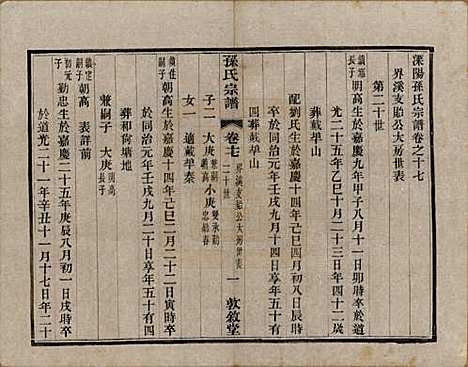 溧陽孫氏宗譜卷之十七
界溪支貽公大房世表
第二十世
長子 明高生於嘉慶九年甲子八月十一日卯時卒於道
光二十五年乙巳十月二十三日年四十二歲
葬戴埠山
配劉氏生於嘉慶十四年 月初八日辰時
卒於同治元年壬戌九月十日享年五十有
四葬戴埠山
子二 大庚 小庚
女一 適戴埠秦
孫氏宗譜
卷七
二十世
一 敦敘堂
嗣子 朝高生於嘉慶十四年己巳二月二十二日寅時卒
於同治元年壬戌九月二十日享年五十有四
葬和尚塘地
兼嗣子 大庚 明高長子
朝高 表詳前
嗣子 勤忠生於嘉慶二十五年庚辰八月初一日戌時卒
於道光二十一年辛丑十一月十七日年二十